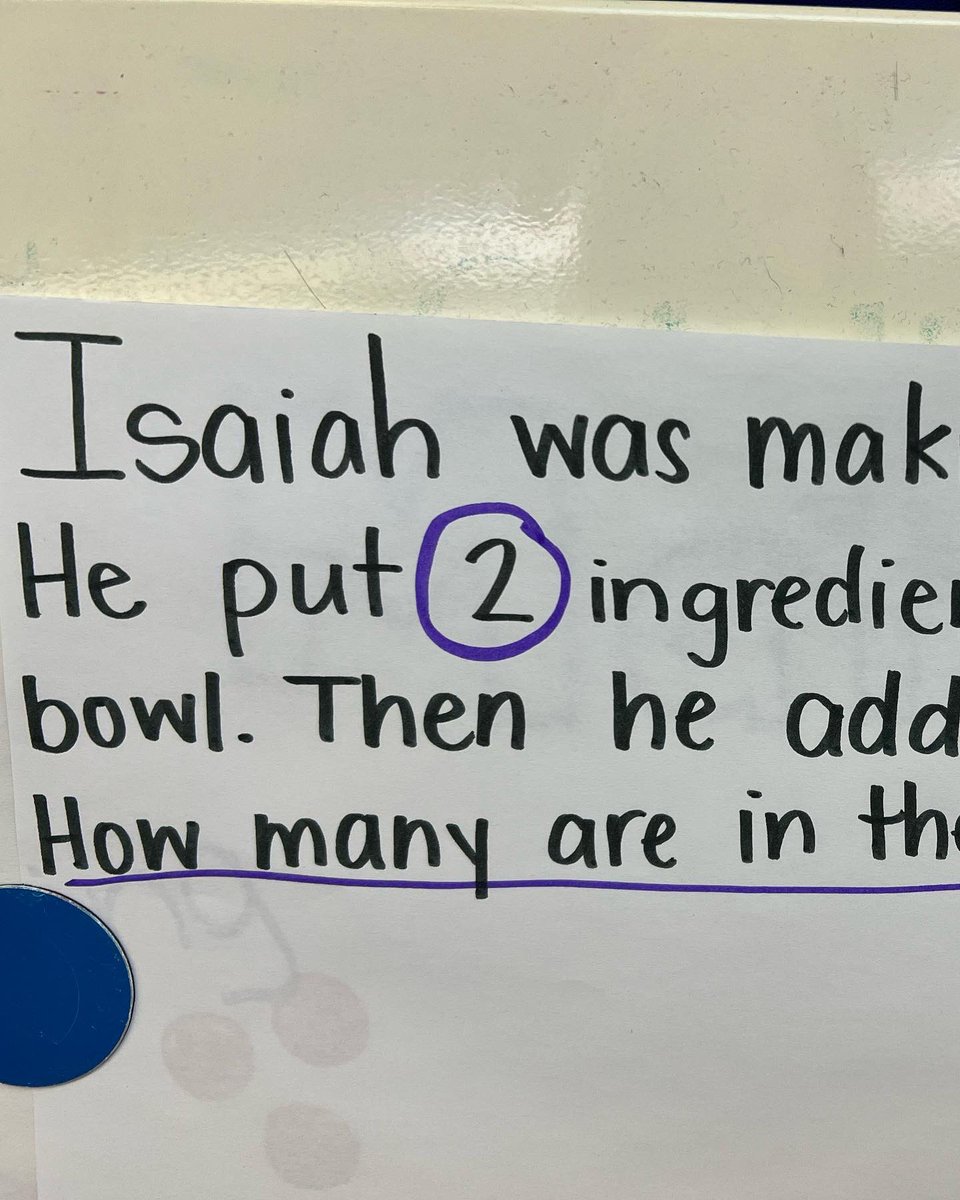 Isaiah was mak
He put 2 ingredie
bowl. Then he add
How many are in the